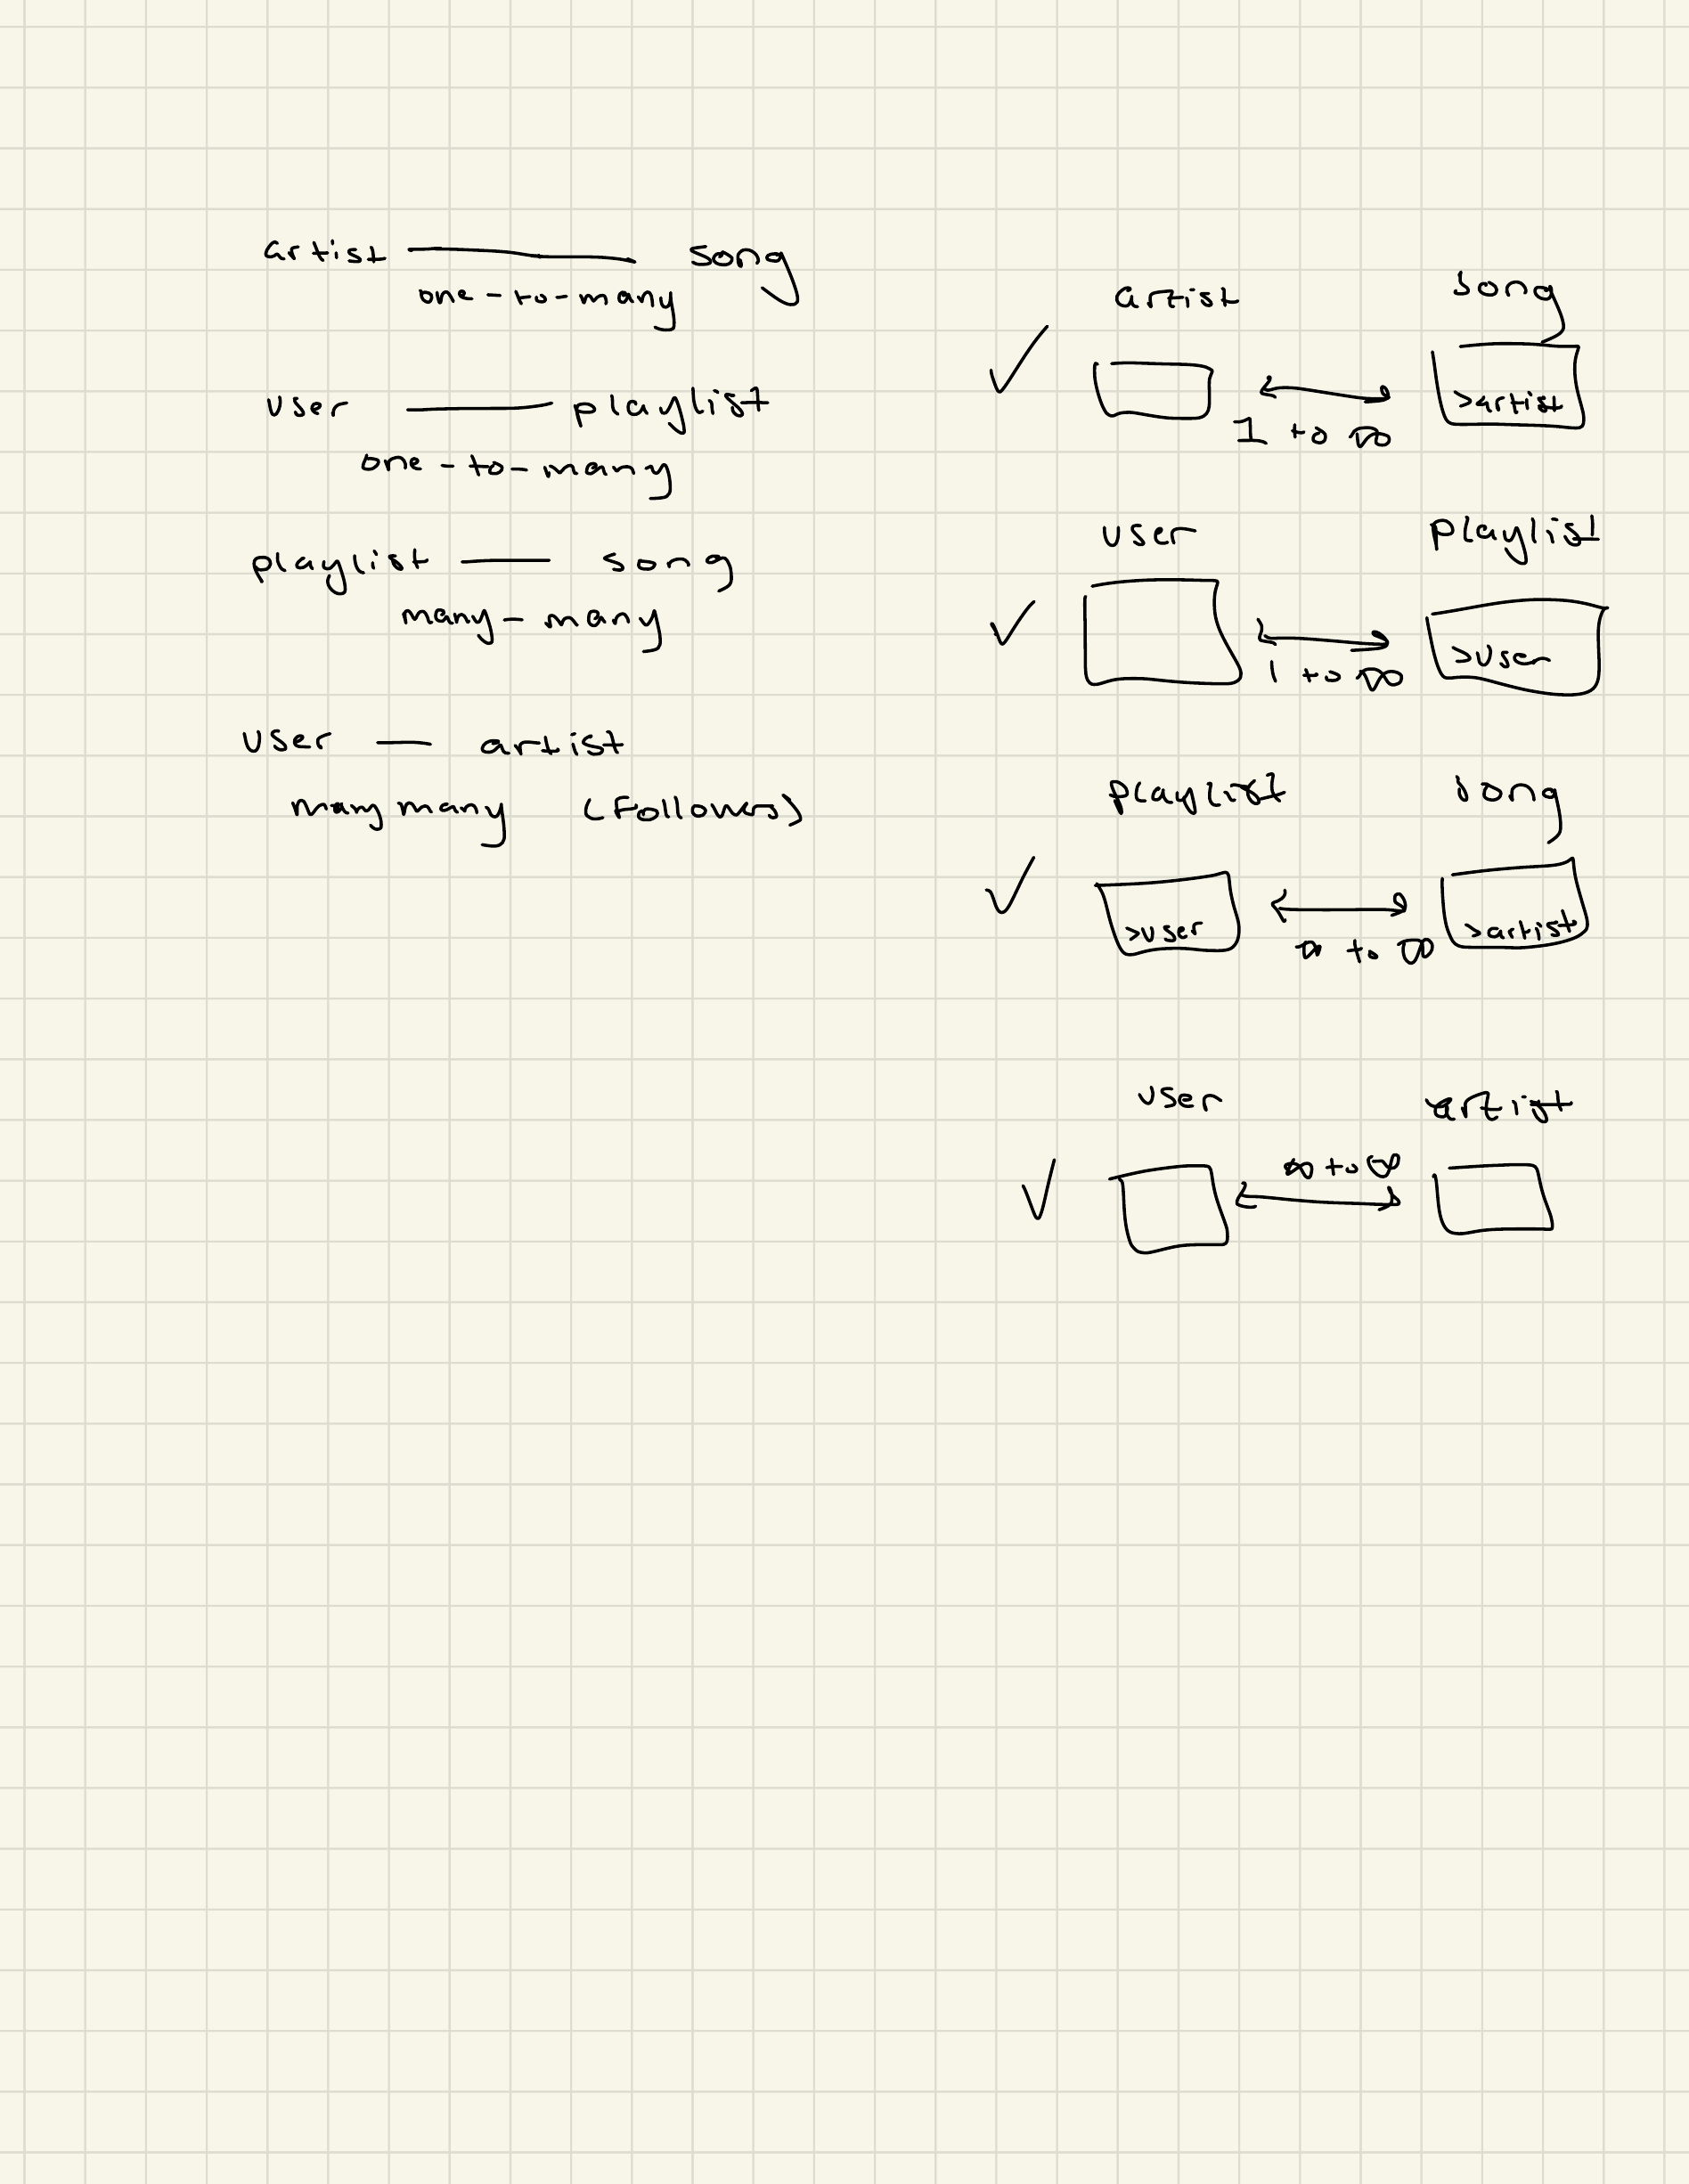 artist song
one-to-many
user playlist
one-to-many
playlist song
many-many
user artist
many many (Followers)
artist song
>artist
1 to ∞
user playlist
>user
1 to ∞
playlist song
>user >artist
∞ to ∞
user artist
∞ to ∞